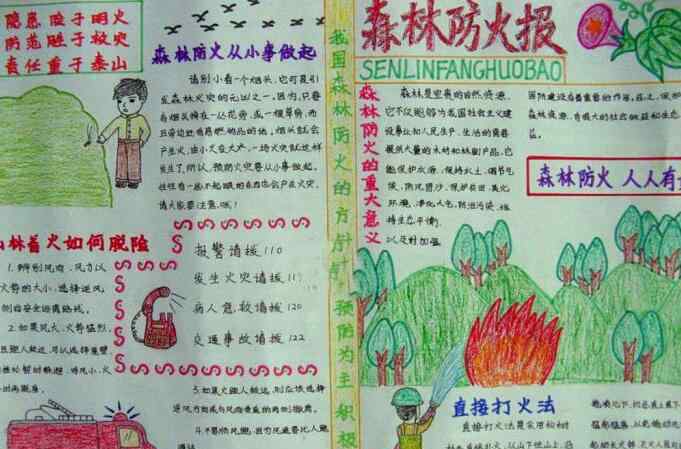 隐患险于明火
防范胜于救灾
责任重于泰山
森林防火从小事做起
请别小看一个烟头,它可是引
发森林火灾的元凶之一,因为,只要
产生火,由小火变大火,一场火就这样
发生了.所以,预防火灾要从小事做起,
请大家要注意哦!
山林着火如何脱险
1.辨别风向、风力以
火势的大小,选择逆风
侧沿安全逃离路线。
2.如果风大,火势猛烈,
报警请拨 110
发生火灾请拨 11
病人急救请拨 120
交通事故请拨 122
3.如果火跑人较近,则应该选择
我国森林防火的方针:预防为主积极
森林防火报
SENLINFANGHUOBAO
森林防火的重大意义
森林是宝贵的自然资源,
它不仅能够为我国社会主义建
设事业和人民生产、生活的需要
提供大量的木材和林副产品,它
能保护水源,保持水土,调节气
候,防风固沙,保护农田,美化
环境,净化大气,防治污染,维
持生态平衡,
以及对加强
国防建设有着重要的作用,总之,保护
森林资源,有很大的社会效益和生态
益。
森林防火 人人有
直接打火法
直接打火法是采用松树